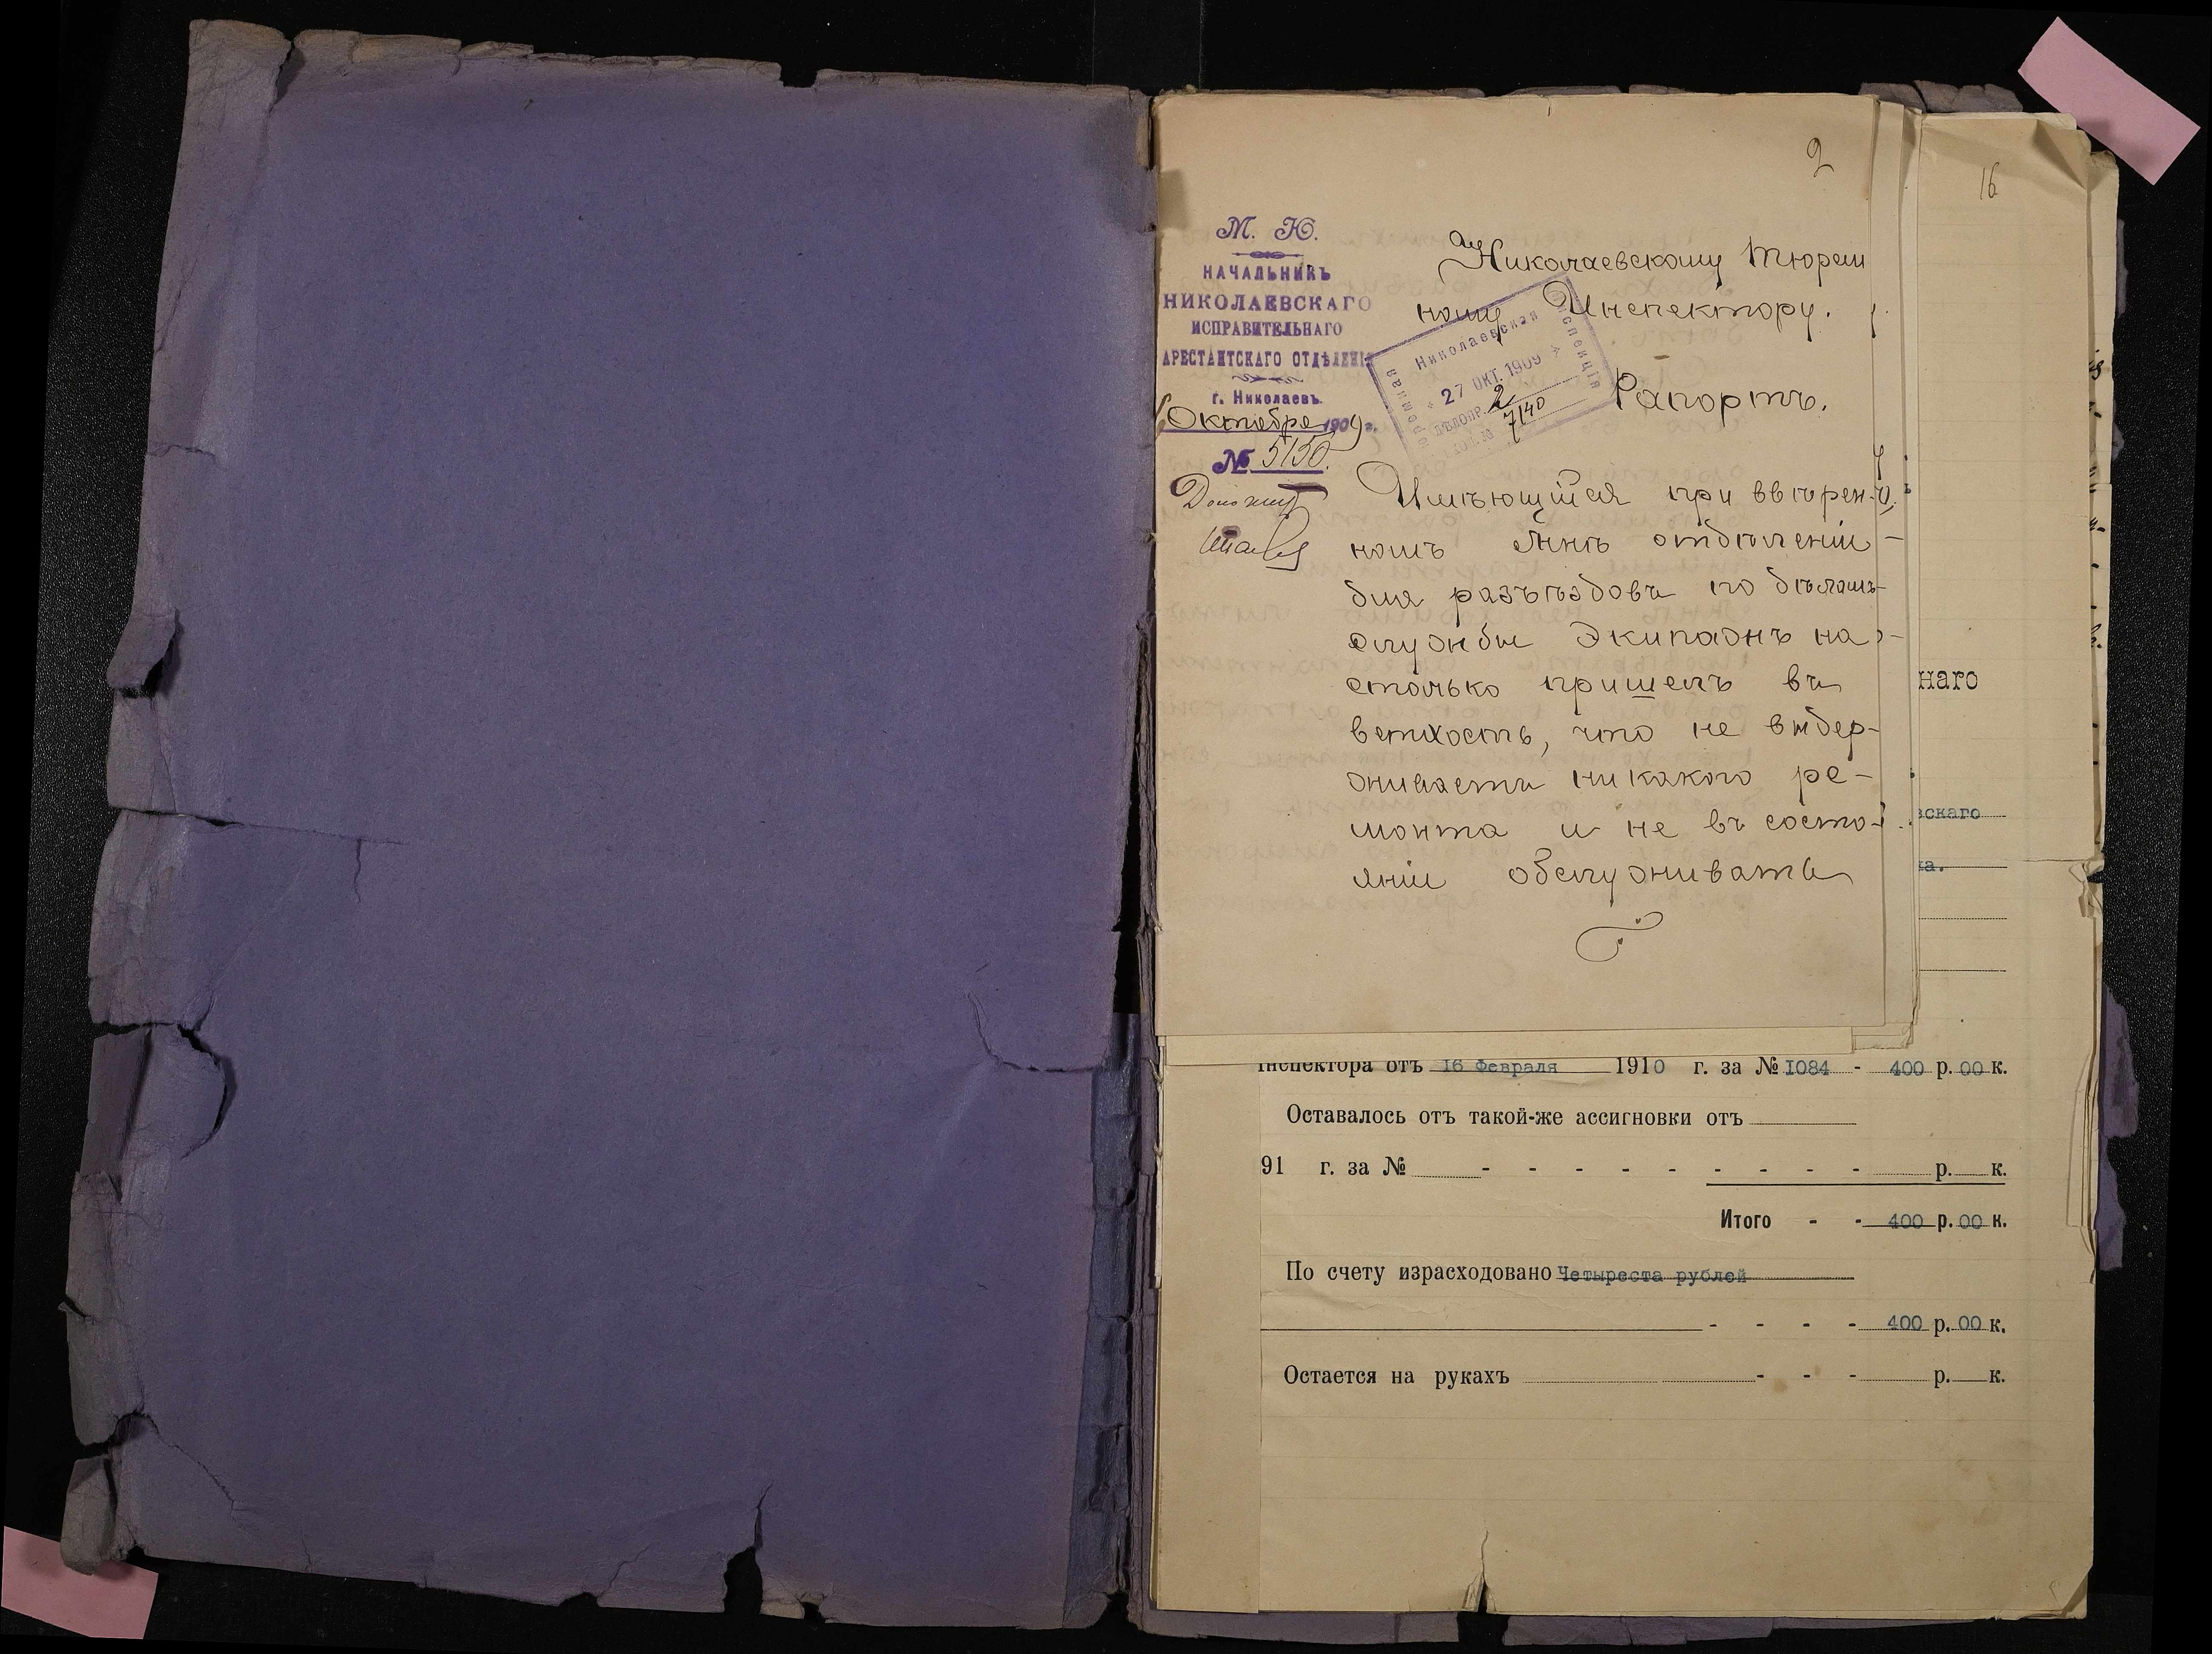 2
16
М. Ю.
НАЧАЛЬНИКЪ
НИКОЛАЕВСКАГО
ИСПРАВИТЕЛЬНАГО
АРЕСТАНТСКАГО ОТДѢЛЕНІЯ
г. Николаевъ.
Октября 1909 г.
№ 5150.
Николаевскому Тюрем
ному Инспектору.
Николаевская
Тюремная
Инспекція
27 ОКТ. 1909
ДѢЛОПР. 2
7140
Рапортъ.
Имѣющійся при ввѣрен-
номъ мнѣ отдѣленіи
для разъѣздовъ по дѣламъ
службы Экипажъ на
столько пришелъ въ
ветхость, что не выдер-
живаетъ никакого ре-
монта и не въ состо-
яніи обслуживать
наго
вскаго
ка.
Инспектора отъ 16 Февраля 1910 г. за № 1084 - 400 р. 00 к.
Оставалось отъ такой-же ассигновки отъ
91 г. за № - - - - - - - - - р. к.
Итого - - 400 р. 00 к.
По счету израсходовано Четыреста рублей
- - - - 400 р. 00 к.
Остается на рукахъ - - - р. к.